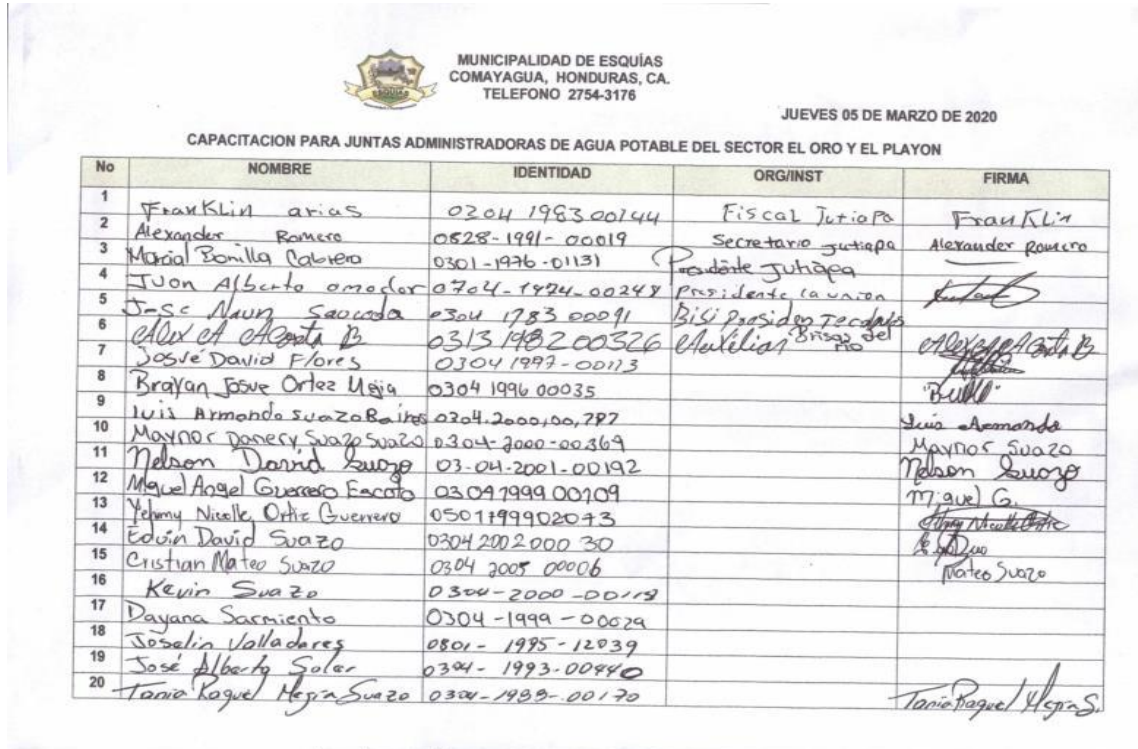 MUNICIPALIDAD DE ESQUÍAS
COMAYAGUA, HONDURAS, CA.
TELEFONO 2754-3176
ESQUIAS
JUEVES 05 DE MARZO DE 2020
CAPACITACION PARA JUNTAS ADMINISTRADORAS DE AGUA POTABLE DEL SECTOR EL ORO Y EL PLAYON
No NOMBRE IDENTIDAD ORG/INST FIRMA
1 FranKLin arias 0204 1983 00244 Fiscal Jutiapa FranKLin
2 Alexander Romero 0828-1991-00019 Secretario Jutiapa Alexander Romero
3 Marcial Bonilla Cabrera 0301-1976-01131 Presidente Jutiapa
4 Juan Alberto amador 0704-1924-00248 Presidente la union
5 Naun Saucoda 0304 1783 00091 Bisi Presiden
6 Alex A Acosta B 0313 1982 00326 Auxiliar Brisas del rio Alex A Acosta B
7 Josué David Flores 0304 1997-00113
8 Brayan Josue Ortez Mejia 0304 1996 00035
9 luis Armando suazo Baires 0304.2000,00,787 Luis Armando
10 Maynor Danery Suazo Suazo 0304-2000-00369 Maynor Suazo
11 Nelson David Suazo 03-04-2001-00192 Nelson Suazo
12 Miguel Angel Guerrero Escoto 0304 1999 00109 Miguel G.
13 Yehmy Nicolle Ortiz Guerrero 0501199902073
14 Edwin David Suazo 0304 2002 000 30
15 Cristian Mateo Suazo 0304 2005 00006 Mateo Suazo
16 Kevin Suazo 0304-2000
17 Dayana Sarmiento 0304-1999-00029
18 Joselin Valladares 0801-1995-12039
19 José Alberto Soler 0304-1993-00440
20 Tania Raquel Megia Suazo 0304-1989-00170 Tania Raquel Megia S.